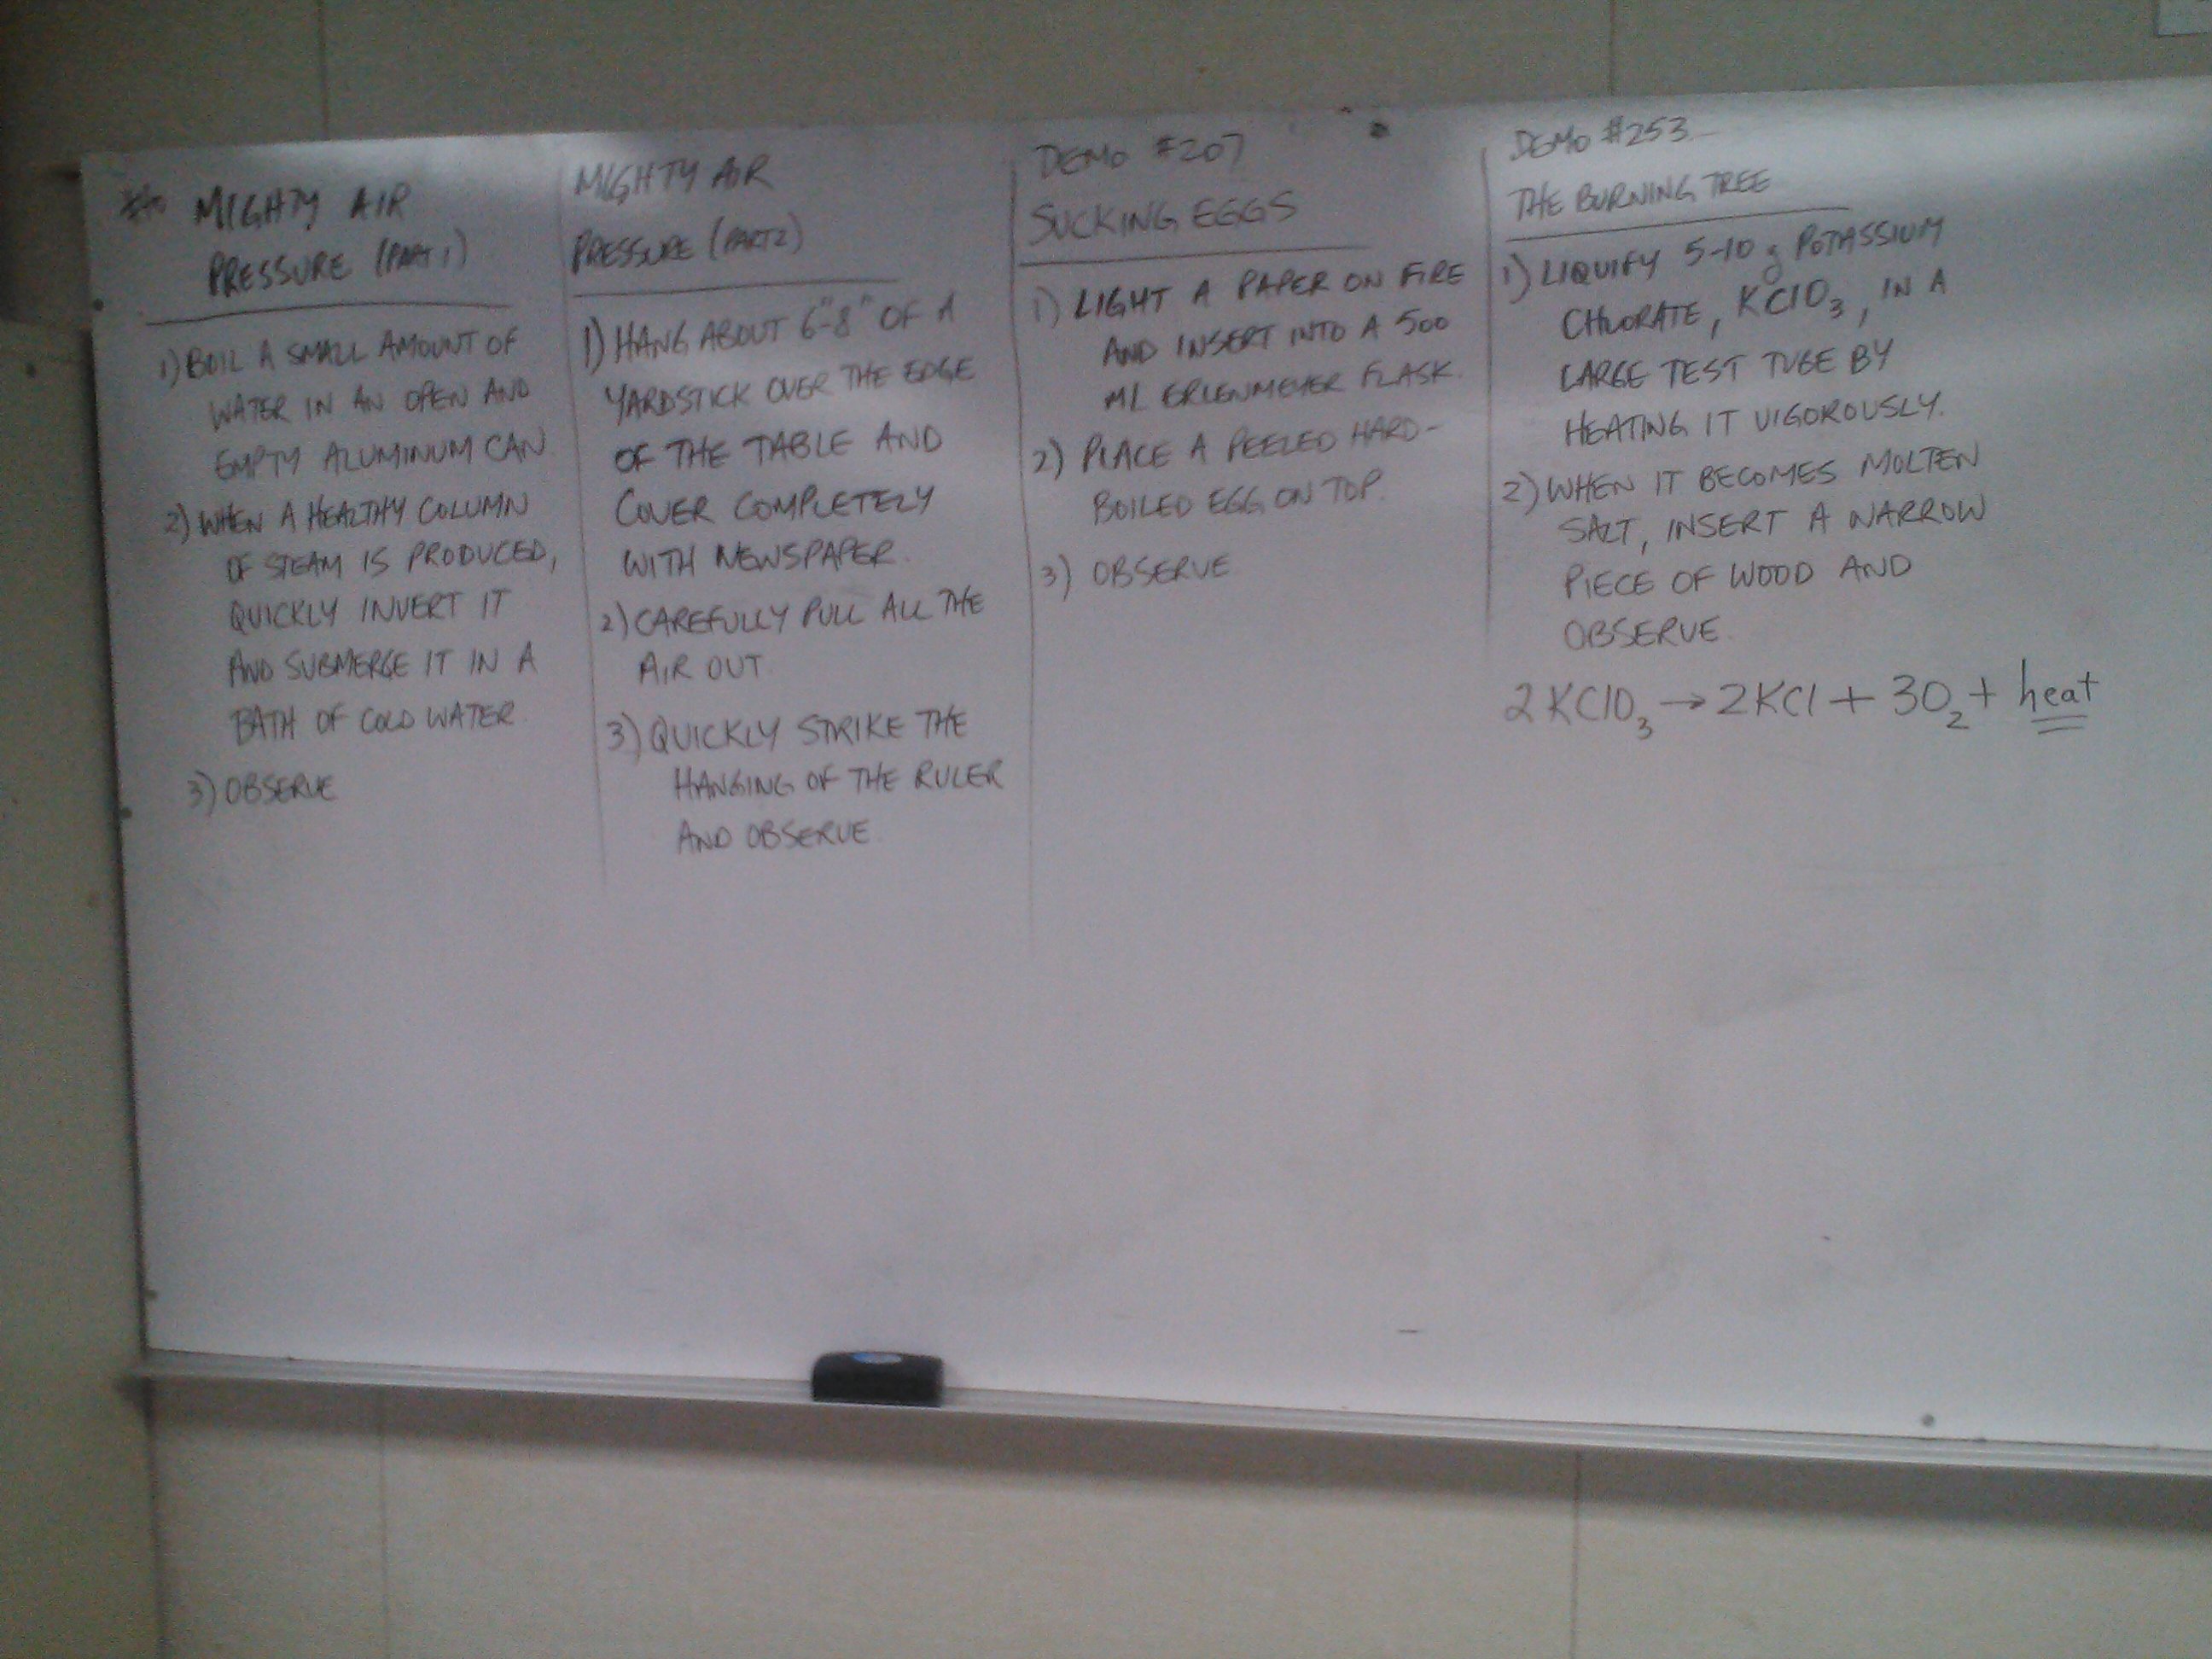 MIGHTY AIR
PRESSURE (PART 1)
1) BOIL A SMALL AMOUNT OF
WATER IN AN OPEN AND
EMPTY ALUMINUM CAN
2) WHEN A HEALTHY COLUMN
OF STEAM IS PRODUCED,
QUICKLY INVERT IT
AND SUBMERGE IT IN A
BATH OF COLD WATER
3) OBSERVE
MIGHTY AIR
PRESSURE (PART 2)
1) HANG ABOUT 6"-8" OF A
YARDSTICK OVER THE EDGE
OF THE TABLE AND
COVER COMPLETELY
WITH NEWSPAPER.
2) CAREFULLY PULL ALL THE
AIR OUT.
3) QUICKLY STRIKE THE
HANGING OF THE RULER
AND OBSERVE
DEMO #207
SUCKING EGGS
1) LIGHT A PAPER ON FIRE
AND INSERT INTO A 500
ML ERLENMEYER FLASK.
2) PLACE A PEELED HARD-
BOILED EGG ON TOP.
3) OBSERVE
DEMO #253
THE BURNING TREE
1) LIQUIFY 5-10 g POTASSIUM
CHLORATE, KClO3, IN A
LARGE TEST TUBE BY
HEATING IT VIGOROUSLY.
2) WHEN IT BECOMES MOLTEN
SALT, INSERT A NARROW
PIECE OF WOOD AND
OBSERVE
2KClO3 → 2KCl + 3O2 + heat